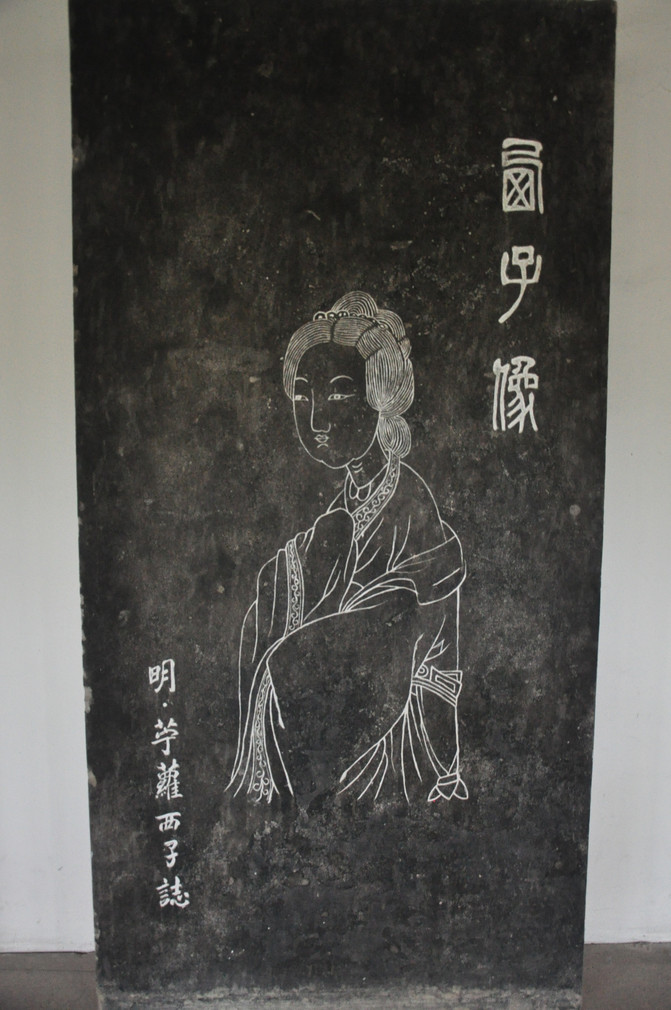 西子像
明·苧蘿西子誌